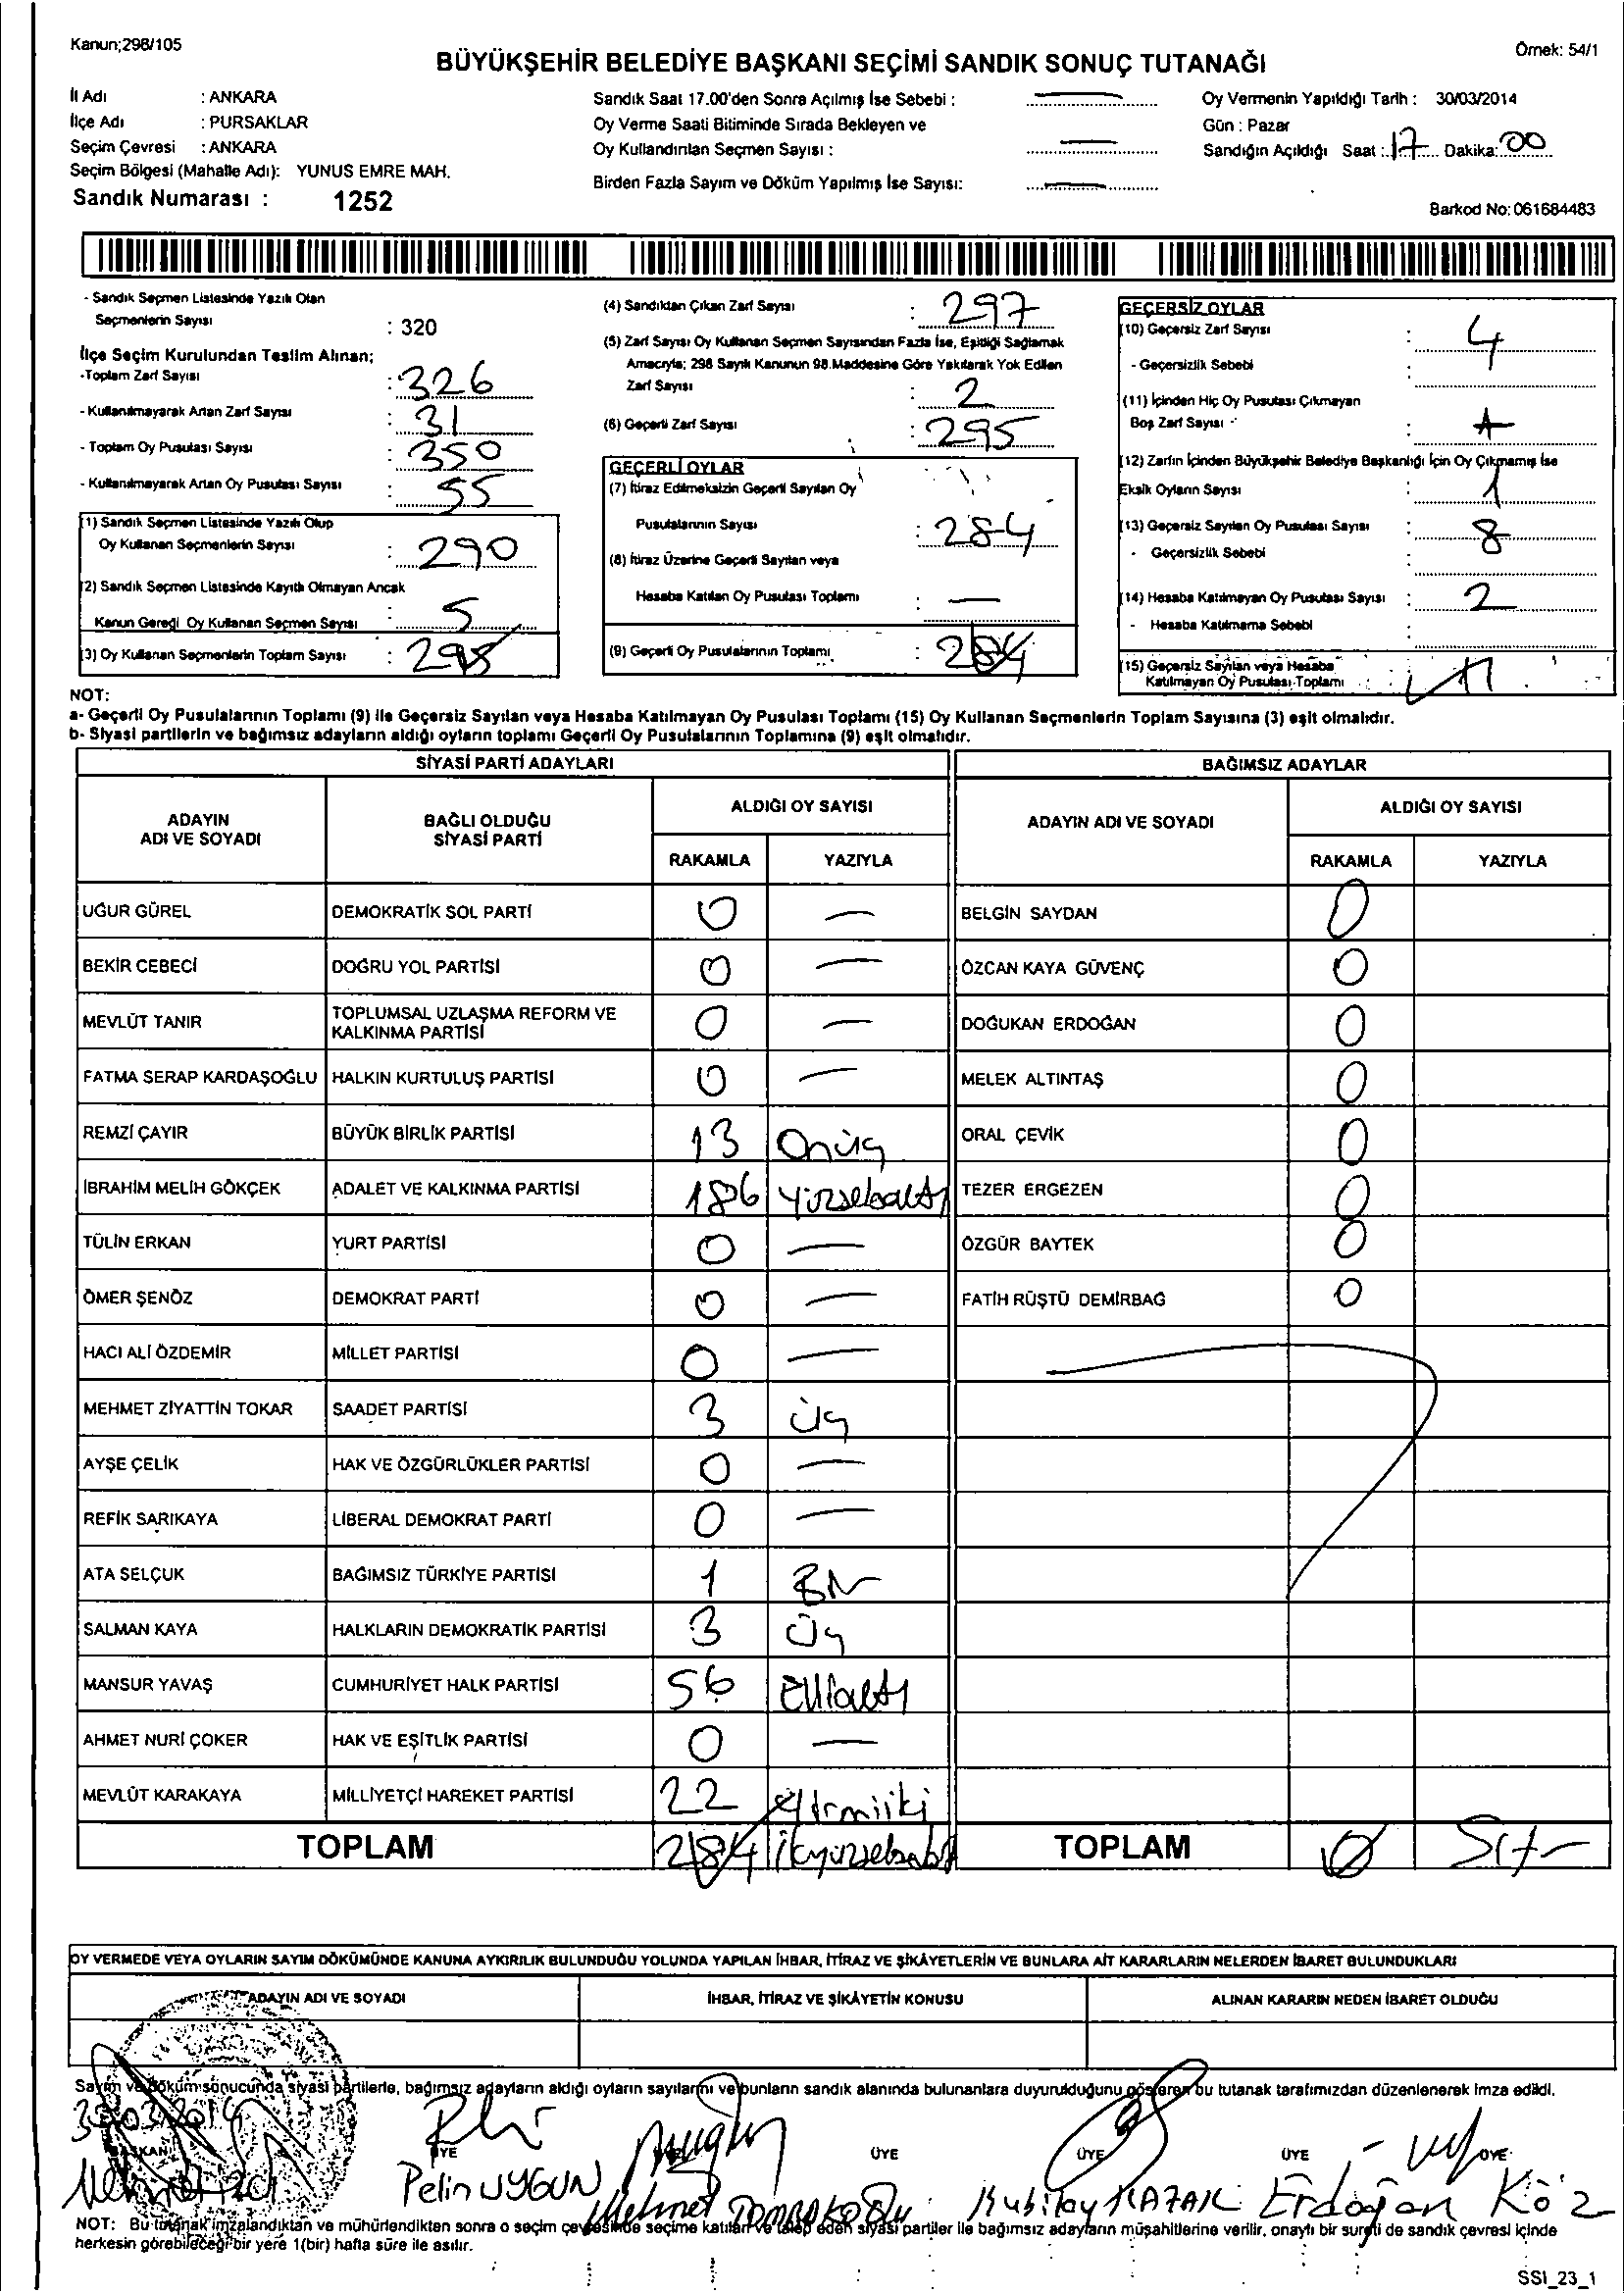 Kanun;298/105
Örnek: 54/1
BÜYÜKŞEHİR BELEDİYE BAŞKANI SEÇİMİ SANDIK SONUÇ TUTANAĞI
İl Adı : ANKARA
İlçe Adı : PURSAKLAR
Seçim Çevresi : ANKARA
Seçim Bölgesi (Mahalle Adı): YUNUS EMRE MAH.
Sandık Numarası : 1252
Sandık Saat 17.00'den Sonra Açılmış İse Sebebi : —
Oy Verme Saati Bitiminde Sırada Bekleyen ve
Oy Kullandırılan Seçmen Sayısı : —
Birden Fazla Sayım ve Döküm Yapılmış İse Sayısı: —
Oy Vermenin Yapıldığı Tarih : 30/03/2014
Gün : Pazar
Sandığın Açıldığı Saat : 17 Dakika: 00
Barkod No: 061684483
- Sandık Seçmen Listesinde Yazılı Olan
Seçmenlerin Sayısı : 320
İlçe Seçim Kurulundan Teslim Alınan;
-Toplam Zarf Sayısı : 326
- Kullanılmayarak Artan Zarf Sayısı : 31
- Toplam Oy Pusulası Sayısı : 350
- Kullanılmayarak Artan Oy Pusulası Sayısı : 55
(1) Sandık Seçmen Listesinde Yazılı Olup
Oy Kullanan Seçmenlerin Sayısı : 290
(2) Sandık Seçmen Listesinde Kayıtlı Olmayan Ancak
Kanun Gereği Oy Kullanan Seçmen Sayısı : 5
(3) Oy Kullanan Seçmenlerin Toplam Sayısı : 295
(4) Sandıktan Çıkan Zarf Sayısı : 297
(5) Zarf Sayısı Oy Kullanan Seçmen Sayısından Fazla İse, Eşitliği Sağlamak
Amacıyla; 298 Sayılı Kanunun 98.Maddesine Göre Yakılarak Yok Edilen
Zarf Sayısı : 2
(6) Geçerli Zarf Sayısı : 295
GEÇERLİ OYLAR
(7) İtiraz Edilmeksizin Geçerli Sayılan Oy
Pusulalarının Sayısı : 284
(8) İtiraz Üzerine Geçerli Sayılan veya
Hesaba Katılan Oy Pusulası Toplamı : —
(9) Geçerli Oy Pusulalarının Toplamı : 284
GEÇERSİZ OYLAR
(10) Geçersiz Zarf Sayısı : 4
- Geçersizlik Sebebi :
(11) İçinden Hiç Oy Pusulası Çıkmayan
Boş Zarf Sayısı :
(12) Zarfın İçinden Büyükşehir Belediye Başkanlığı İçin Oy Çıkmamış İse
Eksik Oyların Sayısı : 1
(13) Geçersiz Sayılan Oy Pusulası Sayısı : 8
- Geçersizlik Sebebi
(14) Hesaba Katılmayan Oy Pusulası Sayısı : 2
- Hesaba Katılmama Sebebi :
(15) Geçersiz Sayılan veya Hesaba
Katılmayan Oy Pusulası Toplamı : 11
NOT:
a- Geçerli Oy Pusulalarının Toplamı (9) ile Geçersiz Sayılan veya Hesaba Katılmayan Oy Pusulası Toplamı (15) Oy Kullanan Seçmenlerin Toplam Sayısına (3) eşit olmalıdır.
b- Siyasi partilerin ve bağımsız adayların aldığı oyların toplamı Geçerli Oy Pusulalarının Toplamına (9) eşit olmalıdır.
SİYASİ PARTİ ADAYLARI
ADAYIN ADI VE SOYADI
BAĞLI OLDUĞU SİYASİ PARTİ
ALDIĞI OY SAYISI
RAKAMLA YAZIYLA
UĞUR GÜREL DEMOKRATİK SOL PARTİ 0 —
BEKİR CEBECİ DOĞRU YOL PARTİSİ 0 —
MEVLÜT TANIR TOPLUMSAL UZLAŞMA REFORM VE KALKINMA PARTİSİ 0 —
FATMA SERAP KARDAŞOĞLU HALKIN KURTULUŞ PARTİSİ 0 —
REMZİ ÇAYIR BÜYÜK BİRLİK PARTİSİ 13 Onüç
İBRAHİM MELİH GÖKÇEK ADALET VE KALKINMA PARTİSİ 186 Yüzseksenaltı
TÜLİN ERKAN YURT PARTİSİ 0 —
ÖMER ŞENÖZ DEMOKRAT PARTİ 0 —
HACI ALİ ÖZDEMİR MİLLET PARTİSİ 0 —
MEHMET ZİYATTİN TOKAR SAADET PARTİSİ 3 üç
AYŞE ÇELİK HAK VE ÖZGÜRLÜKLER PARTİSİ 0 —
REFİK SARIKAYA LİBERAL DEMOKRAT PARTİ 0 —
ATA SELÇUK BAĞIMSIZ TÜRKİYE PARTİSİ 1 Bir
SALMAN KAYA HALKLARIN DEMOKRATİK PARTİSİ 3 Üç
MANSUR YAVAŞ CUMHURİYET HALK PARTİSİ 56 Elli altı
AHMET NURİ ÇOKER HAK VE EŞİTLİK PARTİSİ 0 —
MEVLÜT KARAKAYA MİLLİYETÇİ HAREKET PARTİSİ 22 yirmiiki
TOPLAM 284
BAĞIMSIZ ADAYLAR
ADAYIN ADI VE SOYADI
ALDIĞI OY SAYISI
RAKAMLA YAZIYLA
BELGİN SAYDAN 0
ÖZCAN KAYA GÜVENÇ 0
DOĞUKAN ERDOĞAN 0
MELEK ALTINTAŞ 0
ORAL ÇEVİK 0
TEZER ERGEZEN 0
ÖZGÜR BAYTEK 0
FATİH RÜŞTÜ DEMİRBAĞ 0
TOPLAM 0 Sıfır
OY VERMEDE VEYA OYLARIN SAYIM DÖKÜMÜNDE KANUNA AYKIRILIK BULUNDUĞU YOLUNDA YAPILAN İHBAR, İTİRAZ VE ŞİKÂYETLERİN VE BUNLARA AİT KARARLARIN NELERDEN İBARET BULUNDUKLARI
ADAYIN ADI VE SOYADI
İHBAR, İTİRAZ VE ŞİKÂYETİN KONUSU
ALINAN KARARIN NEDEN İBARET OLDUĞU
Sayım ve döküm sonucunda siyasi partilerle, bağımsız adayların aldığı oyların sayılarını ve bunların sandık alanında bulunanlara duyurulduğunu gösteren bu tutanak tarafımızdan düzenlenerek imza edildi.
30/03/2014
BAŞKAN ÜYE ÜYE ÜYE ÜYE ÜYE
Mehmet
Pelin UYGUN
Mehmet
Kubilay KAZAK
Erdoğan Köz
NOT: Bu tutanak imzalandıktan ve mühürlendikten sonra o seçim çevresinde seçime katılan ve talep eden siyasi partiler ile bağımsız adayların müşahitlerine verilir, onaylı bir sureti de sandık çevresi içinde
herkesin görebileceği bir yere 1(bir) hafta süre ile asılır.
SSI_23_1